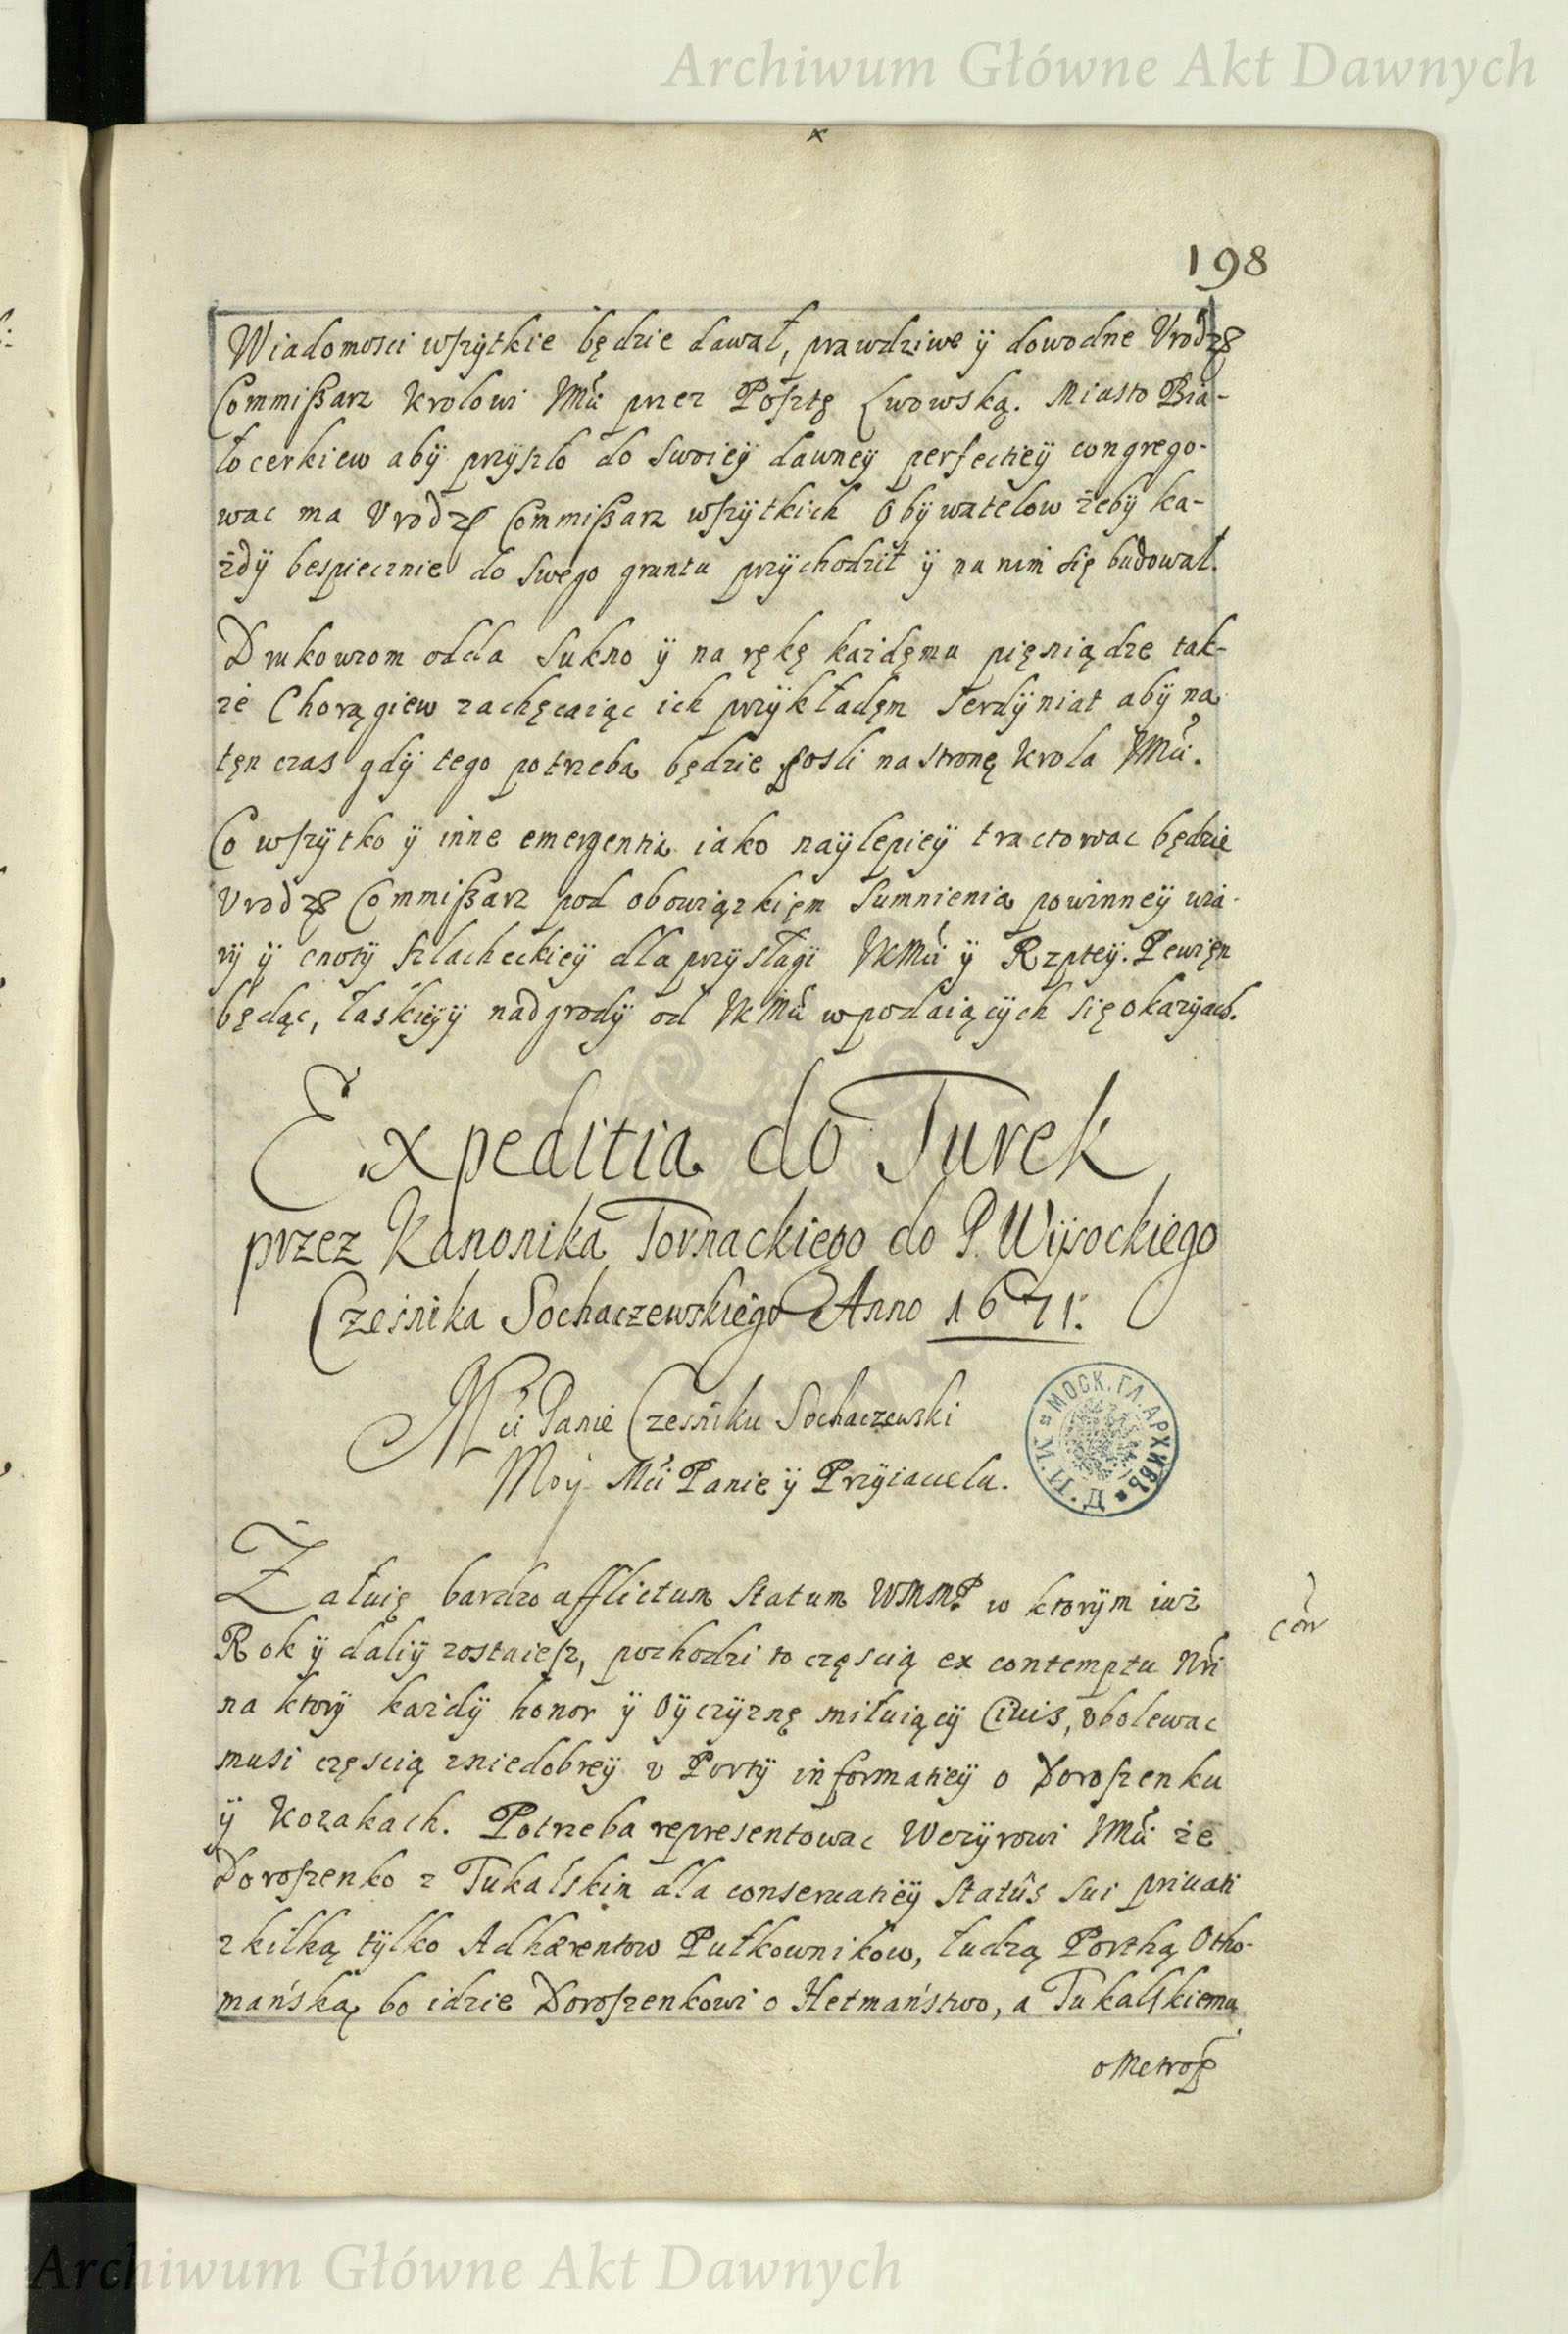 Archiwum Główne Akt Dawnych
x
198
Wiadomosci wszÿtkie będzie dawał, prawdziwe ÿ dowodne Vrodz
Commißarz Krolowi JMći przez Posztę Lwowską. Miasto Bia-
łocerkiew abÿ przÿszło do swoieÿ dawneÿ perfectieÿ congrego-
wac ma Vrodz Commißarz wszÿtkich Obÿwatelow żebÿ ka-
żdÿ bespiecznie do swego gruntu przÿchodził ÿ na nim się budował.
oddа sukno ÿ na rękę każdęmu pięniądze tak-
że Chorągiew zachęcaiąc ich przÿkładęm Serdÿniat abÿ na
tęn czas gdÿ tego potrzeba będzie poszli na stronę Krola JMći.
Co wszÿtko ÿ inne emergentia iako naÿlepieÿ tractowac będzie
Vrodz Commißarz pod obowiązkięm Sumnienia powinneÿ wia-
rÿ ÿ cnotÿ szlacheckieÿ dla przÿsługi JKMći ÿ Rzpteÿ. Pewięn
będąc, łaskieÿ ÿ nadgrodÿ od JKMći w podaiącÿch się okazÿach.
Expeditia do Turek
przez Kanonika Tornackiego do P. Wÿsockiego
Czesnika Sochaczewskiego Anno 1671.
Mći Panie Czesniku Sochaczewski
Moÿ Mći Panie ÿ Przÿiacielu.
МОСК. ГЛ. АРХИВЪ М. И. Д.
Załuię bardzo afflictum Statum WMMP w ktorÿm iuż
Rok ÿ daliÿ zostaiesz, pochodzi to częscią ex contemptu Nri
na ktorÿ każdÿ honor ÿ Oÿczÿznę miłuiącÿ Ciuis, vbolewac
musi częscią z niedobreÿ v Portÿ informatieÿ o Doroszenku
ÿ Kozakach. Potrzeba repręsentowac Wezÿrowi JMći że
Doroszenko z Tukalskim dla conseruatieÿ Statûs sui priuati
z kilką tÿlko Adhærentow Pułkownikow, łudzą Porthą Otho-
mańską, bo idzie Doroszenkowi o Hetmaństwo, a Tukalskiemu
o Metrop
Archiwum Główne Akt Dawnych